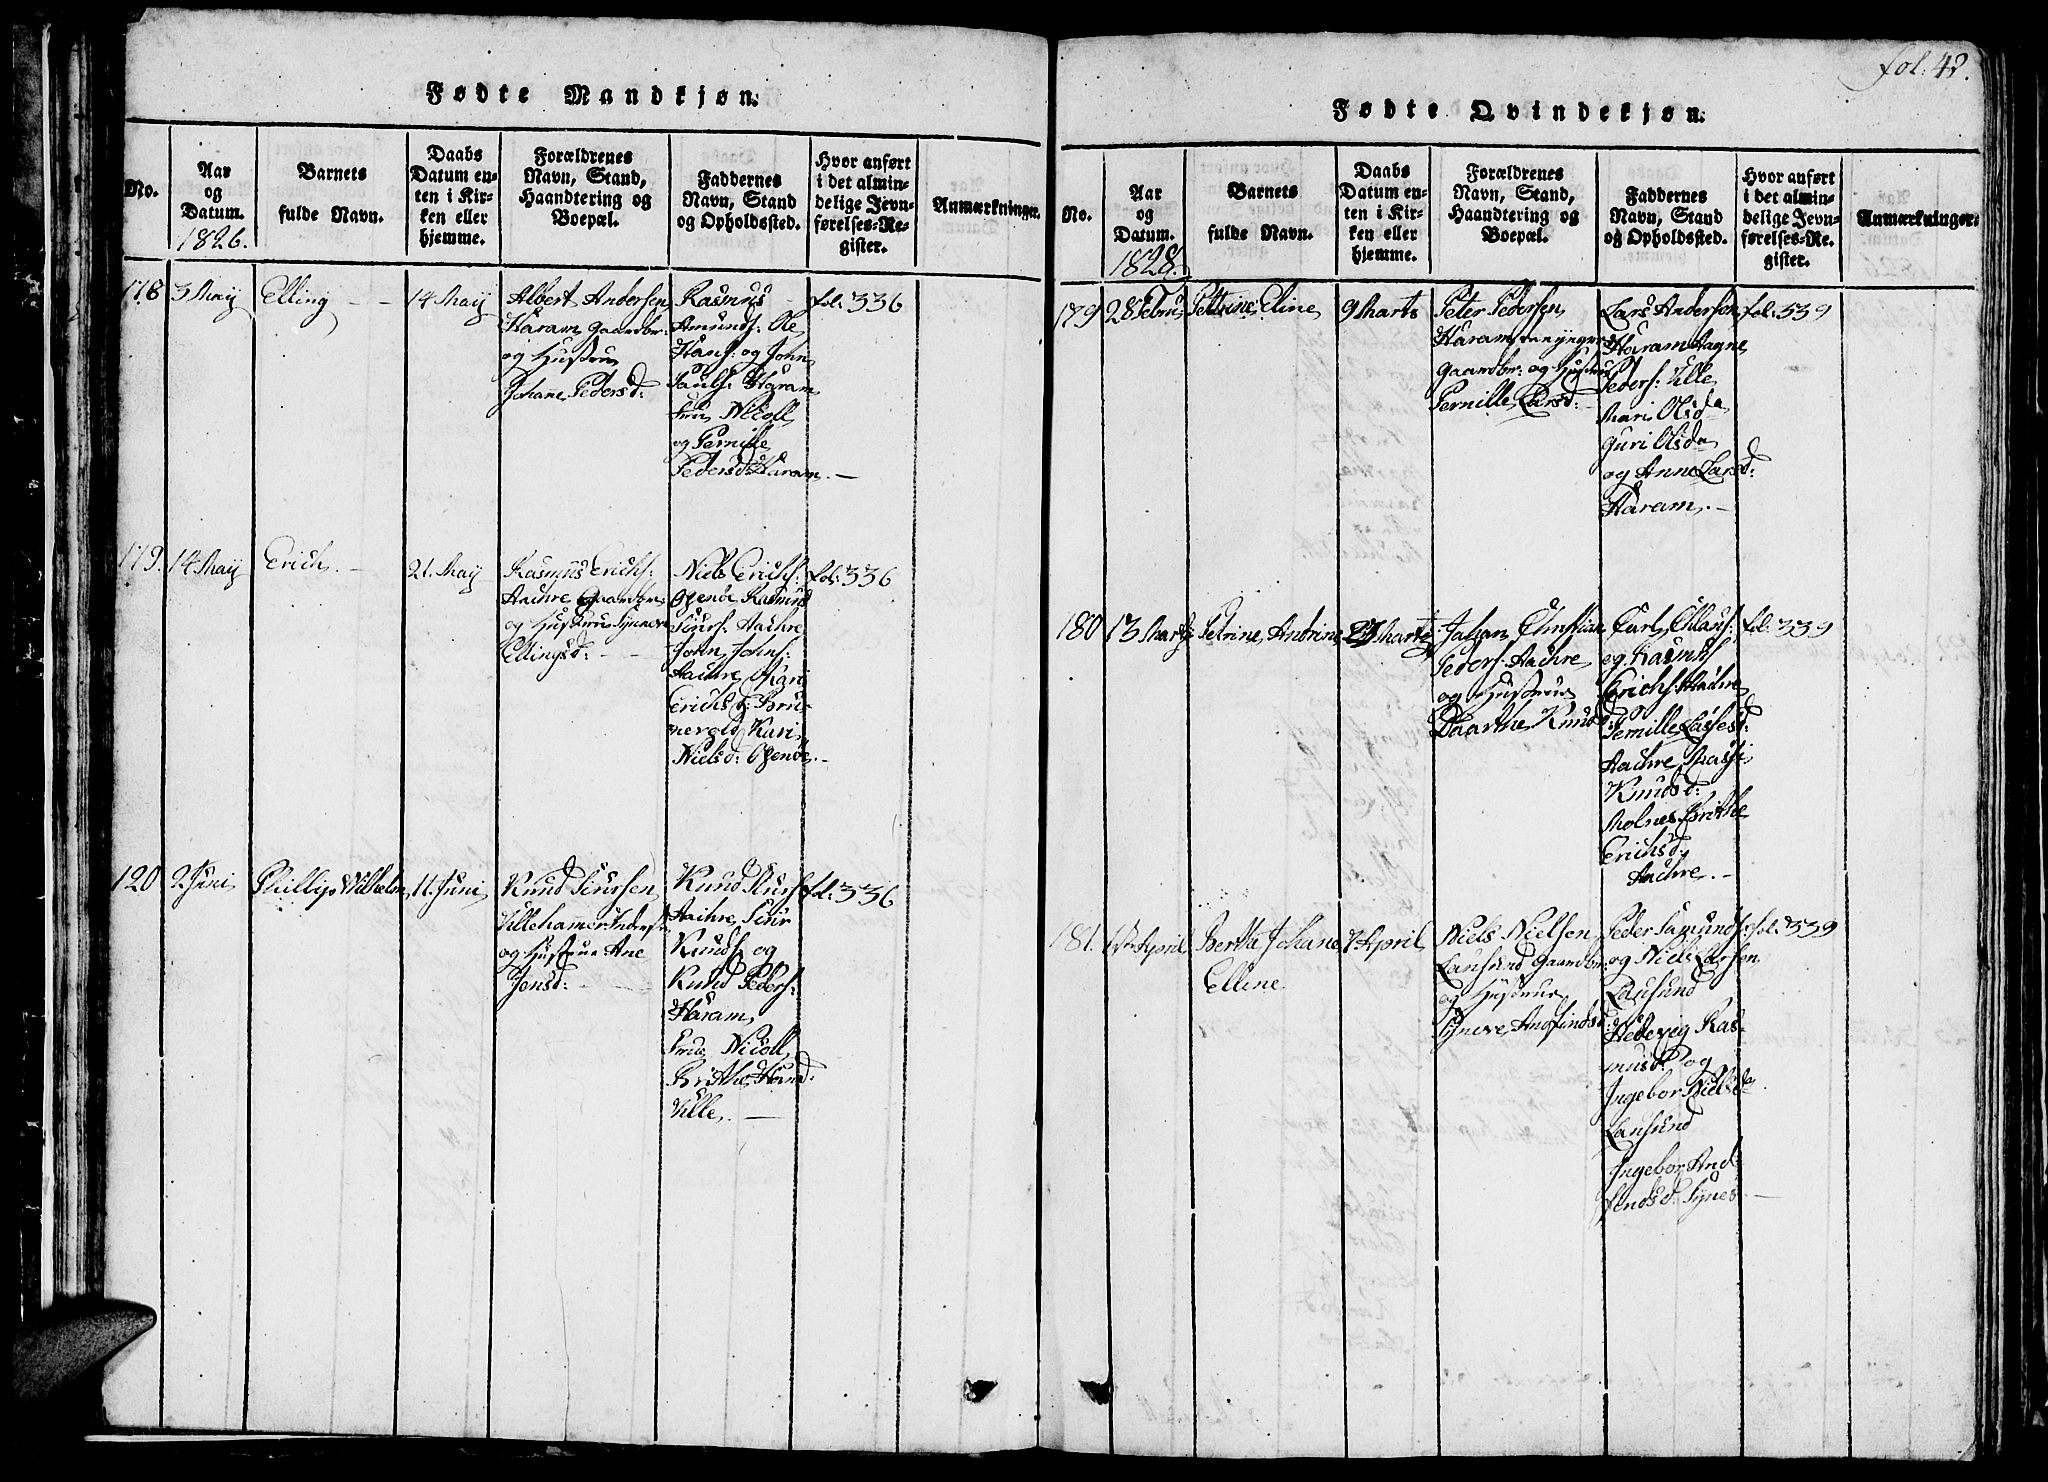 fol: 42.
Fødte Mandkjøn.
No.
Aar og Datum.
1826.
Barnets fulde Navn.
Daabs Datum enten i Kirken eller hjemme.
Forældrenes Navn, Stand, Haandtering og Boepæl.
Faddernes Navn, Stand og Opholdssted.
Hvor anført i det almindelige Jevnførelses-Register.
Anmærkninger.
178
3 Maij
Elling
14 Maij
Albert Andersen
Haram Gaardbr:
og Hustrue
Johanne Pedersd:
Rasmus
Amunds: Ole
Hans: og John
Pauls: Haram
Nicoll
og Pernille
Pedersd: Haram. —
fol: 336
179.
14 Maij
Erich. —
21. Maij
Rasmus Erichs:
Aachre Gaardbr
og Hustrue Synneve
Ellingsd:
Niels Erichs:
Rasmus
Siurs: Aachre
John Johns:
Aachre, Mari
Erichsd:
Kari
Nielsd:
fol: 336
120
2 Juni
Phillip Vilhelm
11. Juni
Knud Siursen
og Hustrue Ane
Jensd:
Knud Siurs:
Aachre, Siur
Knuds og
Knud Peders:
Haram,
Nicoll,
Brithe
Ville. —
fol: 336
Fødte Qvindekjøn.
No.
Aar og Datum.
1828.
Barnets fulde Navn.
Daabs Datum enten i Kirken eller hjemme.
Forældrenes Navn, Stand, Haandtering og Boepæl.
Faddernes Navn, Stand og Opholdssted.
Hvor anført i det almindelige Jevnførelses-Register.
Anmærkninger.
179
28 Febru
Pettrine Eline
9 Marts
Peter Pedersen
Haram
Gaardbr: og Hustrue
Pernille Larsd:
Lars Andersen
Haram Aagne
Peders: Ulle
Mari Olsda
Guri Olsda
og Anne Larsd:
Haram. —
fol: 339
180
13 Marts
Petrine Antrine
23 Marts
Johan Christian
Peders: Aachre
og Hustrue
Daarthe Knudsd:
Carl Claus:
og Rasmus
Erichs: Aachre
Pernille Lassesd:
Aachre, Massi
Knudsd:
Molnes Brithe
Erichsd:
Aachre. —
fol: 339
181.
1ste April
Berthe Johane
Elline
7 April
Niels Nielsen
Lausund Gaardbr:
og Hustrue
Synneve Andfindsd:
Peder Samunds:
og Niels Larsen
Lausund
Hedevig Ras-
musd: og
Ingebor Nielsda
Lausund
Ingebor And-
findsd: Synes —
fol: 339